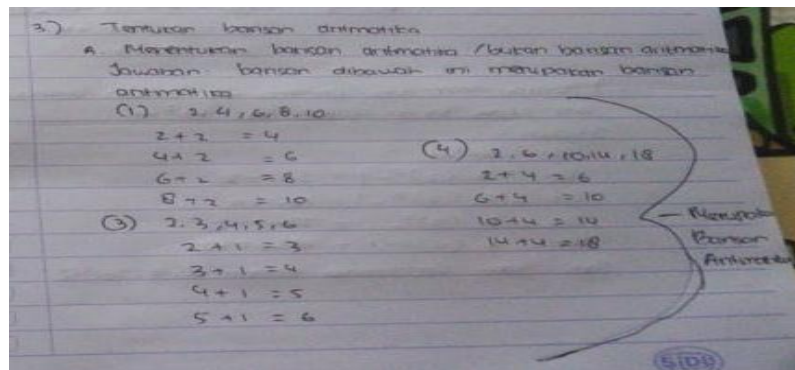 3) Tentukan barisan aritmatika
A. Menentukan barisan aritmatika / bukan barisan aritmatika
Jawaban barisan dibawah ini merupakan barisan
aritmatika
(1) 2, 4, 6, 8, 10
2 + 2 = 4
4 + 2 = 6
6 + 2 = 8
8 + 2 = 10
(3) 2, 3, 4, 5, 6
2 + 1 = 3
3 + 1 = 4
4 + 1 = 5
5 + 1 = 6
(4) 2, 6, 10, 14, 18
2 + 4 = 6
6 + 4 = 10
10 + 4 = 14
14 + 4 = 18
Merupak
Barisan
Aritmatika